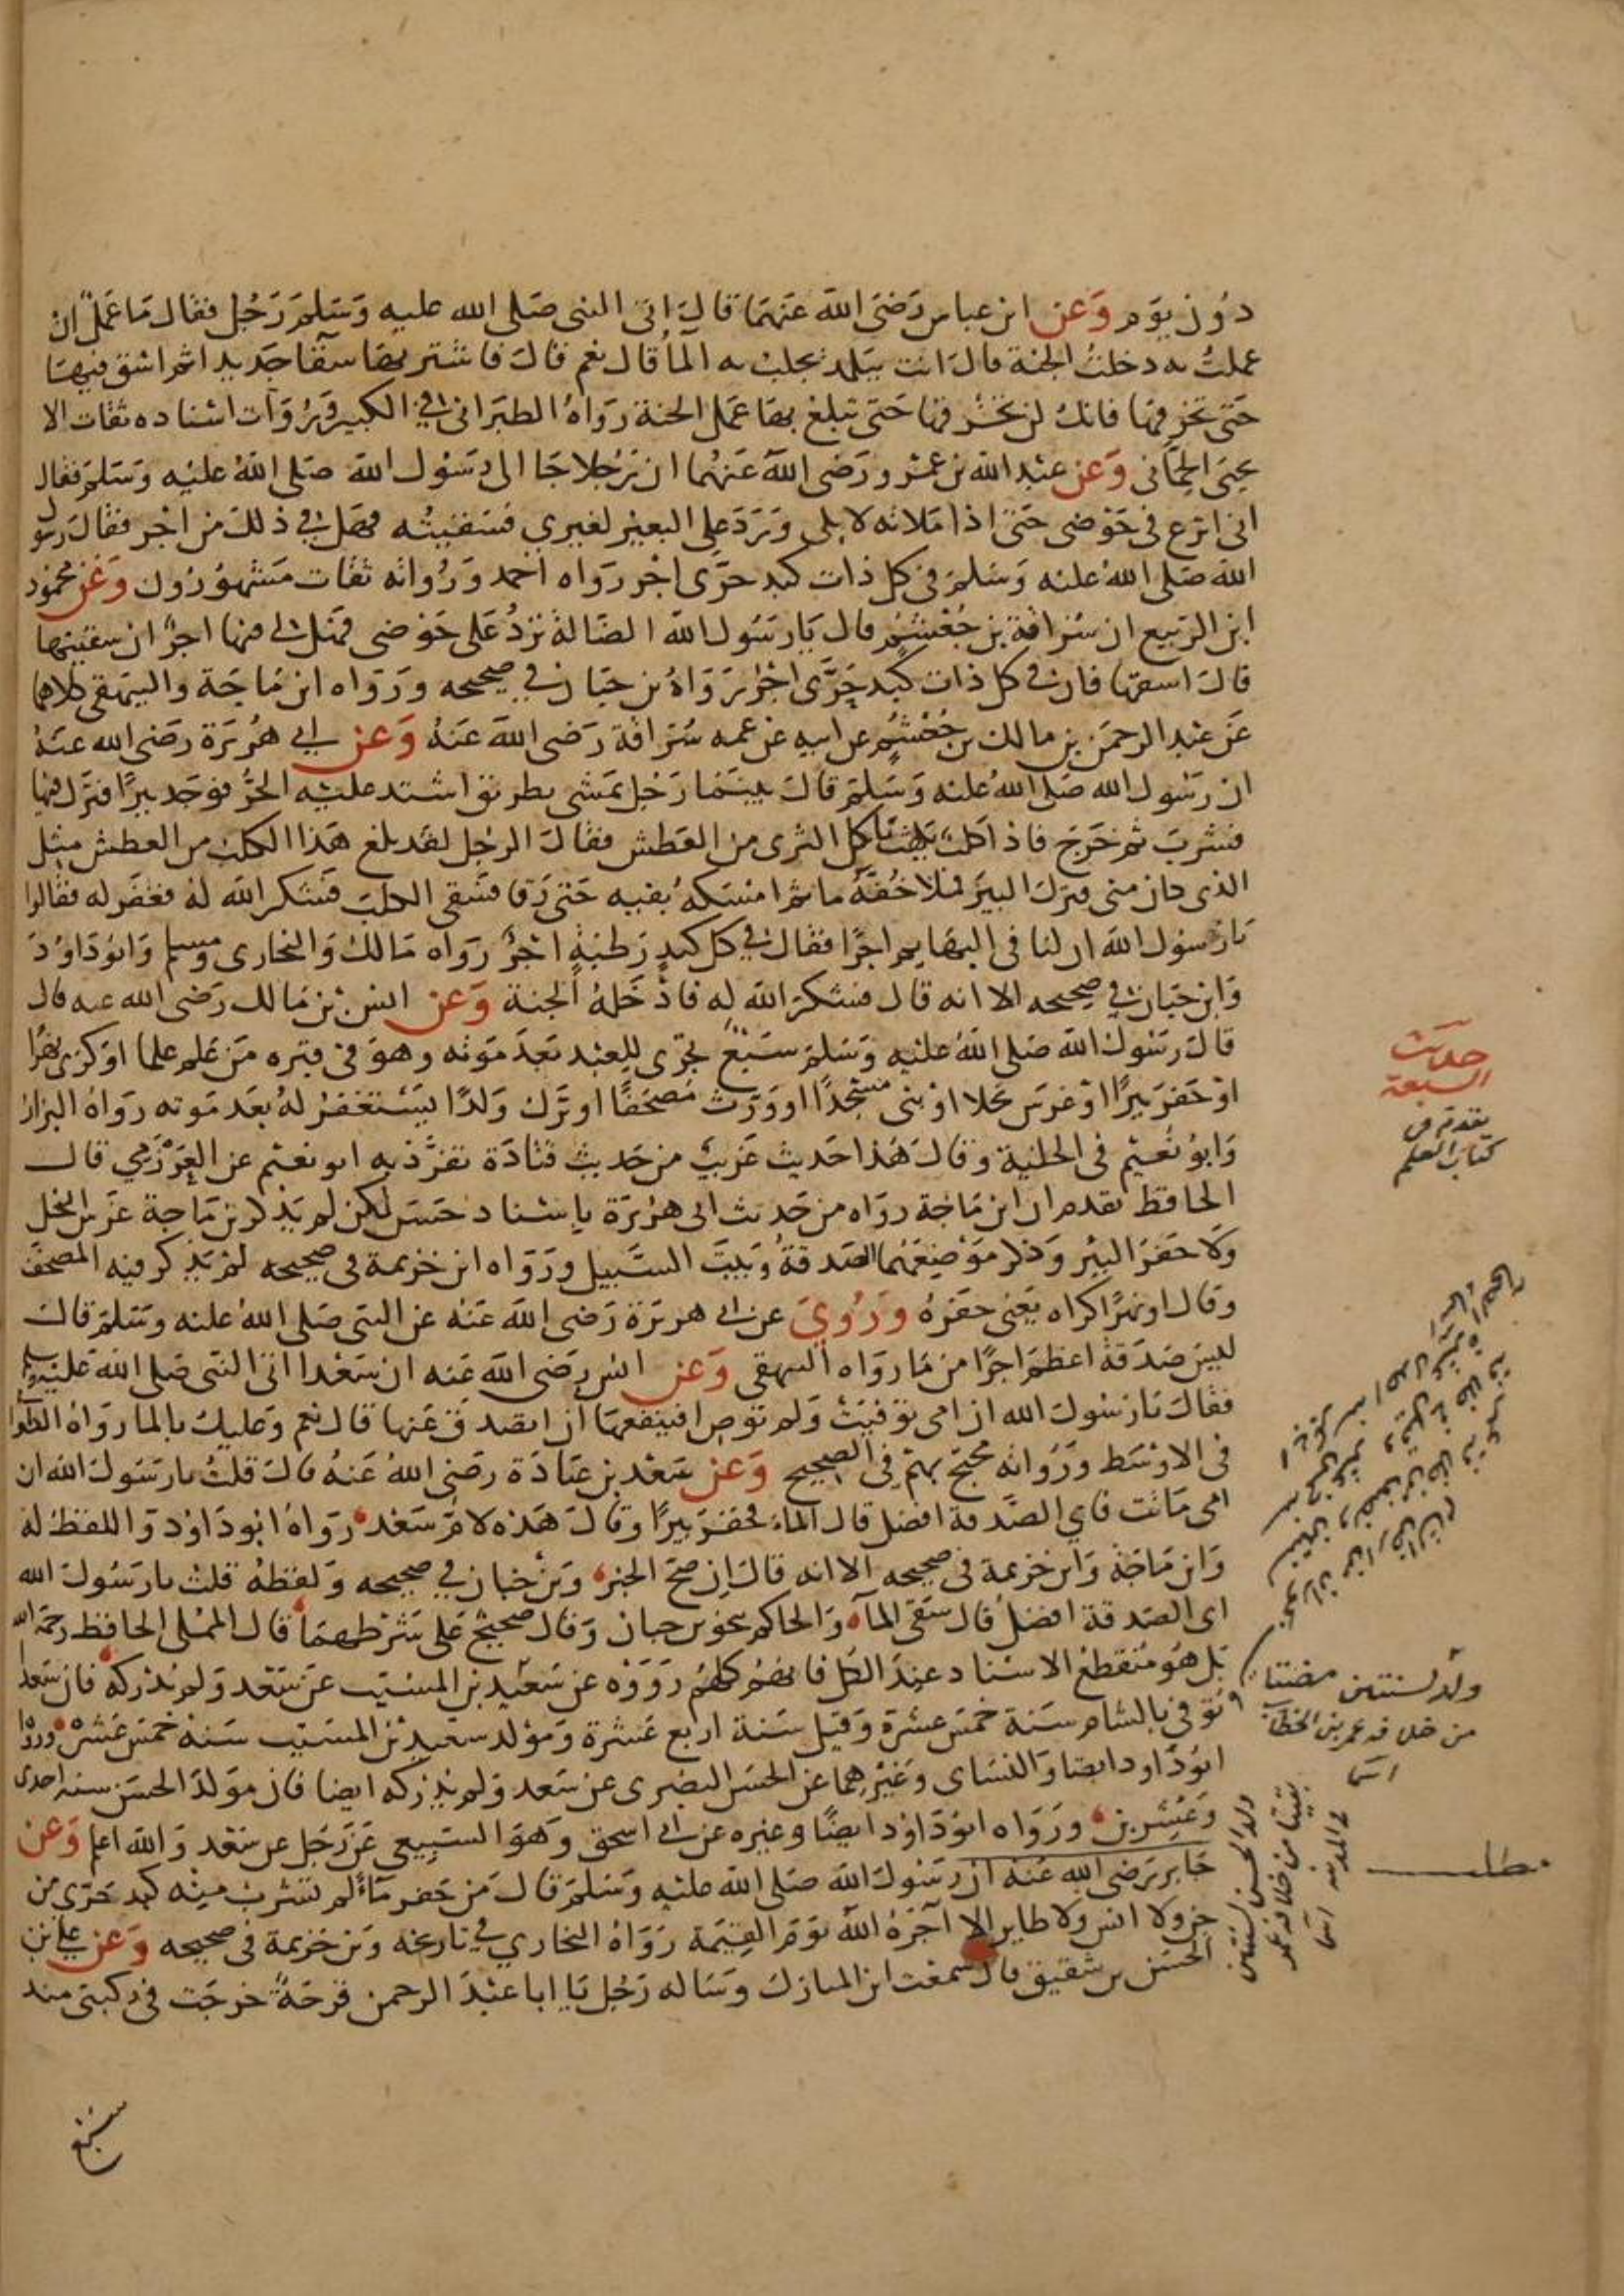 دون يوم وعن ابن عباس رضي الله عنهما قال اتى النبي صلى الله عليه وسلم رجل فقال ما عمل ان
عملت به دخلت الجنة قال انت ببلد يجلب به الماء قال نعم قال فاشتر بها سقا جديدا ثم اسق فيها
حتى تخرقها فانك لن تخرقها حتى تبلغ بها عمل الجنة رواه الطبراني في الكبير ورواة اسناده ثقات الا
يحيى الحماني وعن عبد الله بن عمرو رضي الله عنهما ان رجلا جا الى رسول الله صلى الله عليه وسلم فقال
اني انزع في حوضي حتى اذا ملاته لابلي ورد علي البعير لغيري فسقيته فهل في ذلك من اجر فقال رسول
الله صلى الله عليه وسلم في كل ذات كبد حرى اجر رواه احمد ورواته ثقات مشهورون وعن محمود
ابن الربيع ان سراقة بن جعشم قال يا رسول الله الضالة ترد على حوضي فهل لي فيها اجر ان سقيتها
قال اسقها فان في كل ذات كبد حرى اجرا رواه بن حبان في صحيحه ورواه ابن ماجة والبيهقي كلاهما
عن عبد الرحمن بن مالك بن جعشم عن ابيه عن عمه سراقة رضي الله عنه وعن ابي هريرة رضي الله عنه
ان رسول الله صلى الله عليه وسلم قال بينما رجل يمشي بطريق اشتد عليه الحر فوجد بيرا فنزل فيها
فشرب ثم خرج فاذا كلب يلهث ياكل الثرى من العطش فقال الرجل لقد بلغ هذا الكلب من العطش مثل
الذي كان مني فنزل البير فملا خفه ماء ثم امسكه بفيه حتى رقي فسقى الكلب فشكر الله له فغفر له فقالوا
يا رسول الله ان لنا في البهايم اجرا فقال في كل كبد رطبة اجر رواه مالك والبخاري ومسلم وابو داود
وابن حبان في صحيحه الا انه قال فشكر الله له فادخله الجنة وعن انس بن مالك رضي الله عنه قال
قال رسول الله صلى الله عليه وسلم سبع تجري للعبد بعد موته وهو في قبره من علم علما او كرى نهرا
او حفر بيرا او غرس نخلا او بنى مسجدا او ورث مصحفا او ترك ولدا يستغفر له بعد موته رواه البزار
وابو نعيم في الحلية وقال هذا حديث غريب من حديث قتادة تفرد به ابو نعيم عن العرزمي قال
الحافظ تقدم ان ابن ماجة رواه من حديث ابي هريرة باسناد حسن لكن لم يذكر بن ماجة غرس النخل
ولا حفر البير وذكر موضعهما الصدقة وبيت السبيل ورواه ابن خزيمة في صحيحه لم يذكر فيه المصحف
وقال او نهرا كراه يعني حفره وروي عن ابي هريرة رضي الله عنه عن النبي صلى الله عليه وسلم قال
ليس صدقة اعظم اجرا من ما رواه البيهقي وعن انس رضي الله عنه ان سعدا اتى النبي صلى الله عليه وسلم
فقال يا رسول الله ان امي توفيت ولم توص افينفعها ان اتصدق عنها قال نعم وعليك بالما رواه الطبراني
في الاوسط ورواته محتج بهم في الصحيح وعن سعد بن عبادة رضي الله عنه قال قلت يا رسول الله ان
امي ماتت فاي الصدقة افضل قال الماء فحفر بيرا وقال هذه لام سعد رواه ابو داود واللفظ له
وابن ماجة وابن خزيمة في صحيحه الا انه قال ان صح الخبر وبن حبان في صحيحه ولفظه قلت يا رسول الله
اي الصدقة افضل قال سقي الماء والحاكم بنحو بن حبان وقال صحيح على شرطهما قال المملي الحافظ رحمه الله
بل هو منقطع الاسناد عند الكل فانهم كلهم رووه عن سعيد بن المسيب عن سعد ولم يدركه فان سعدا
توفي بالشام سنة خمس عشرة وقيل سنة اربع عشرة ومولد سعيد بن المسيب سنة خمس عشرة ورواه
ابو داود ايضا والنساي وغيرهما عن الحسن البصري عن سعد ولم يدركه ايضا فان مولد الحسن سنة احدى
وعشرين ورواه ابو داود ايضا وغيره عن ابي اسحق وهو السبيعي عن رجل عن سعد والله اعلم وعن
جابر رضي الله عنه ان رسول الله صلى الله عليه وسلم قال من حفر ماء لم تشرب منه كبد حرى من
جن ولا انس ولا طاير الا آجره الله يوم القيمة رواه البخاري في تاريخه وبن خزيمة في صحيحه وعن علي بن
الحسن بن شقيق قال سمعت ابن المبارك وساله رجل يا ابا عبد الرحمن قرحة خرجت في ركبتي منذ
سبع
حديث
السبعة
تقدم في
كتاب العلم
ولد لسنتين مضتا
من خلافة عمر بن الخطاب
مطلب